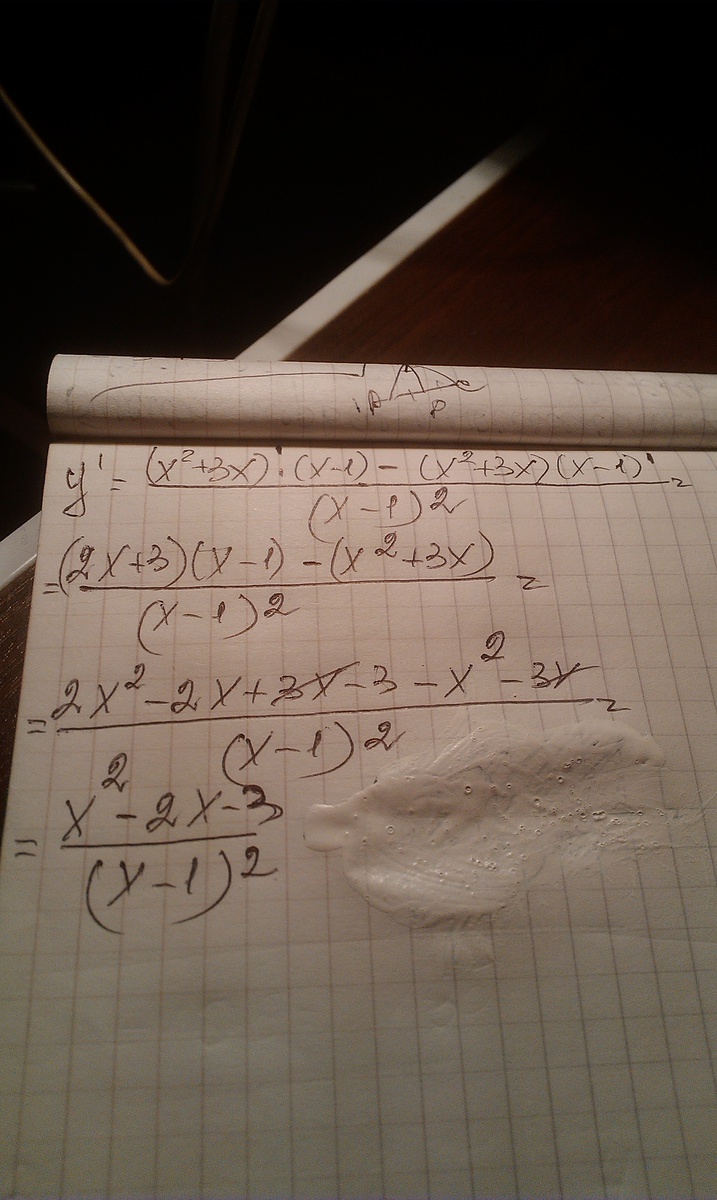 y' = (x²+3x)'·(x-1) - (x²+3x)(x-1)' =
(x-1)²
= (2x+3)(x-1) - (x²+3x) =
(x-1)²
= 2x² - 2x + 3x - 3 - x² - 3x =
(x-1)²
= x² - 2x - 3
(x-1)²